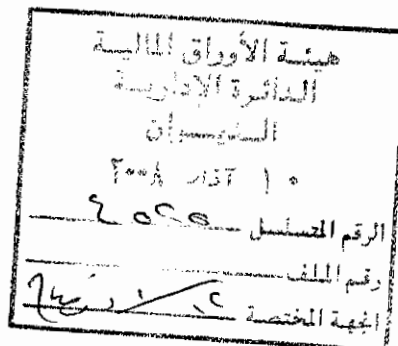 هيئة الأوراق المالية
الدائرة الإدارية
الديوان
١٠ آذار ٢٠٠٨
الرقم المتسلسل
رقم الملف
الجهة المختصة